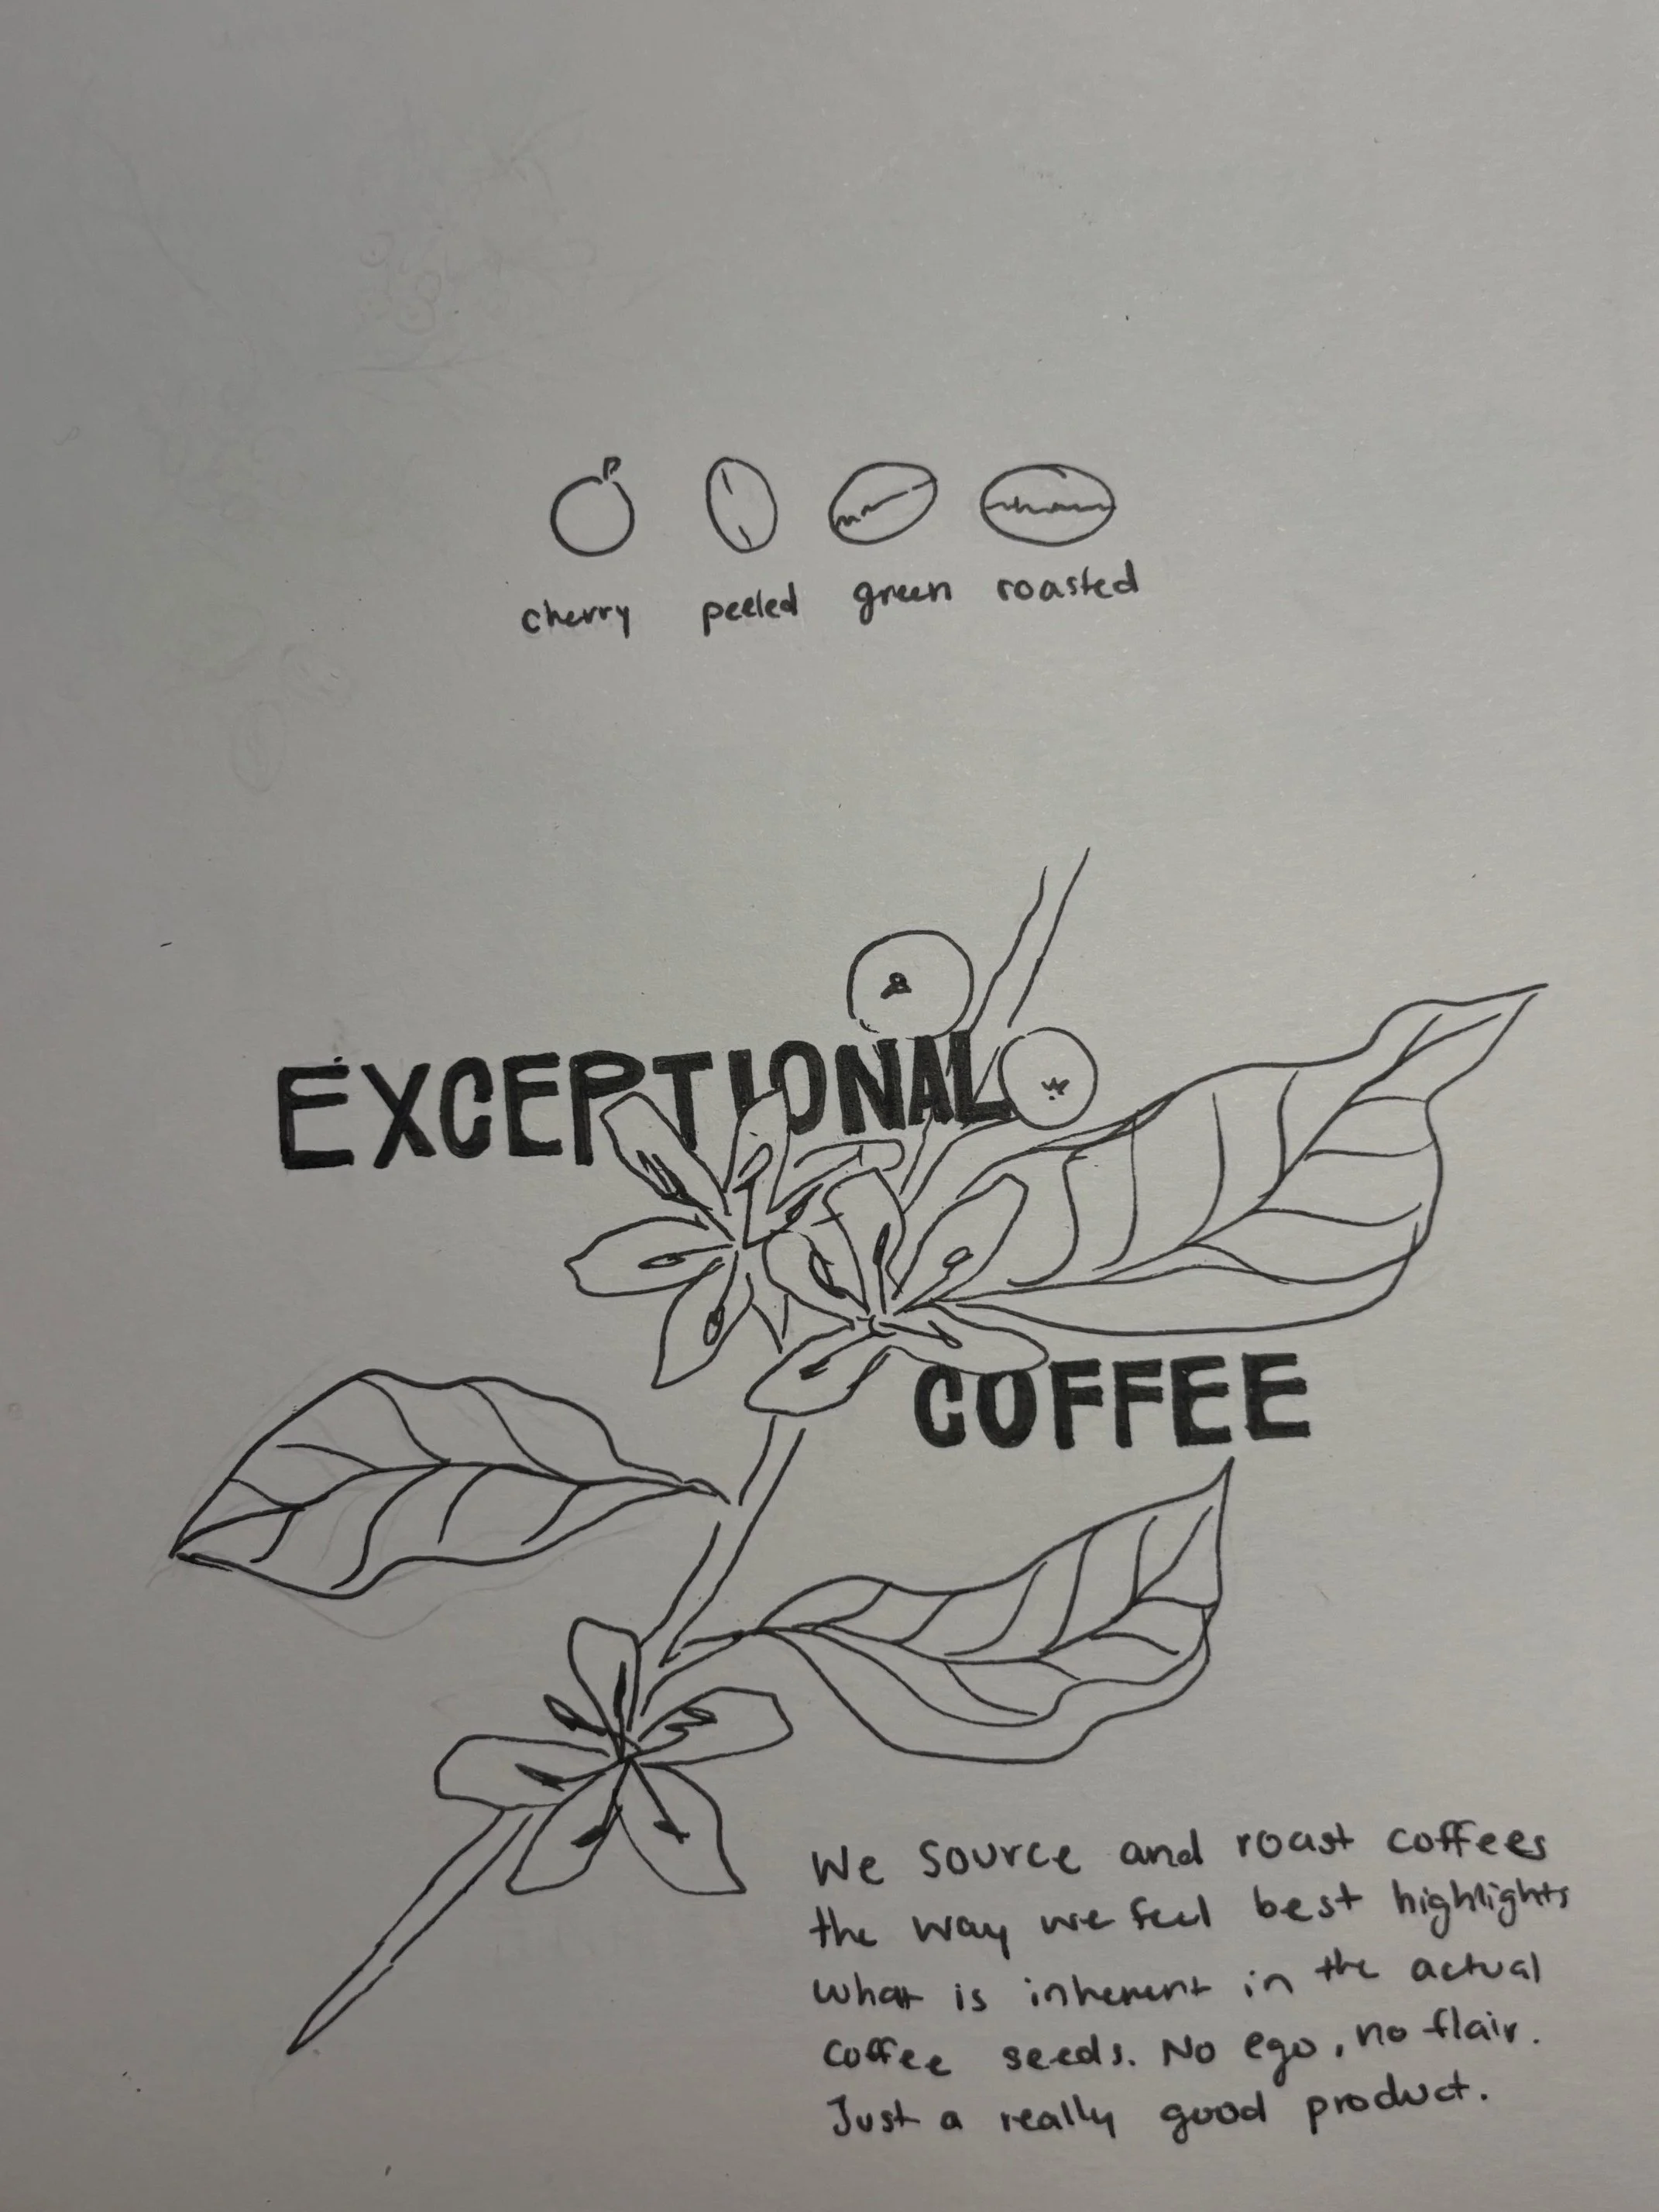 cherry peeled green roasted
EXCEPTIONAL
COFFEE
We source and roast coffees
the way we feel best highlights
what is inherent in the actual
coffee seeds. No ego, no flair.
Just a really good product.